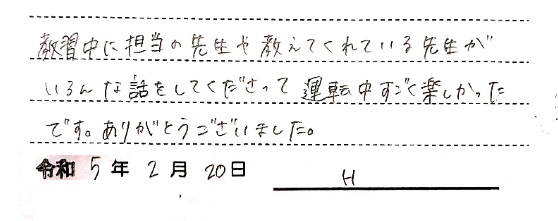 教習中に担当の先生や教えてくれている先生が
いろんな話をしてくださって運転中すごく楽しかった
です。ありがとうございました。
令和 5 年 2 月 20 日
H